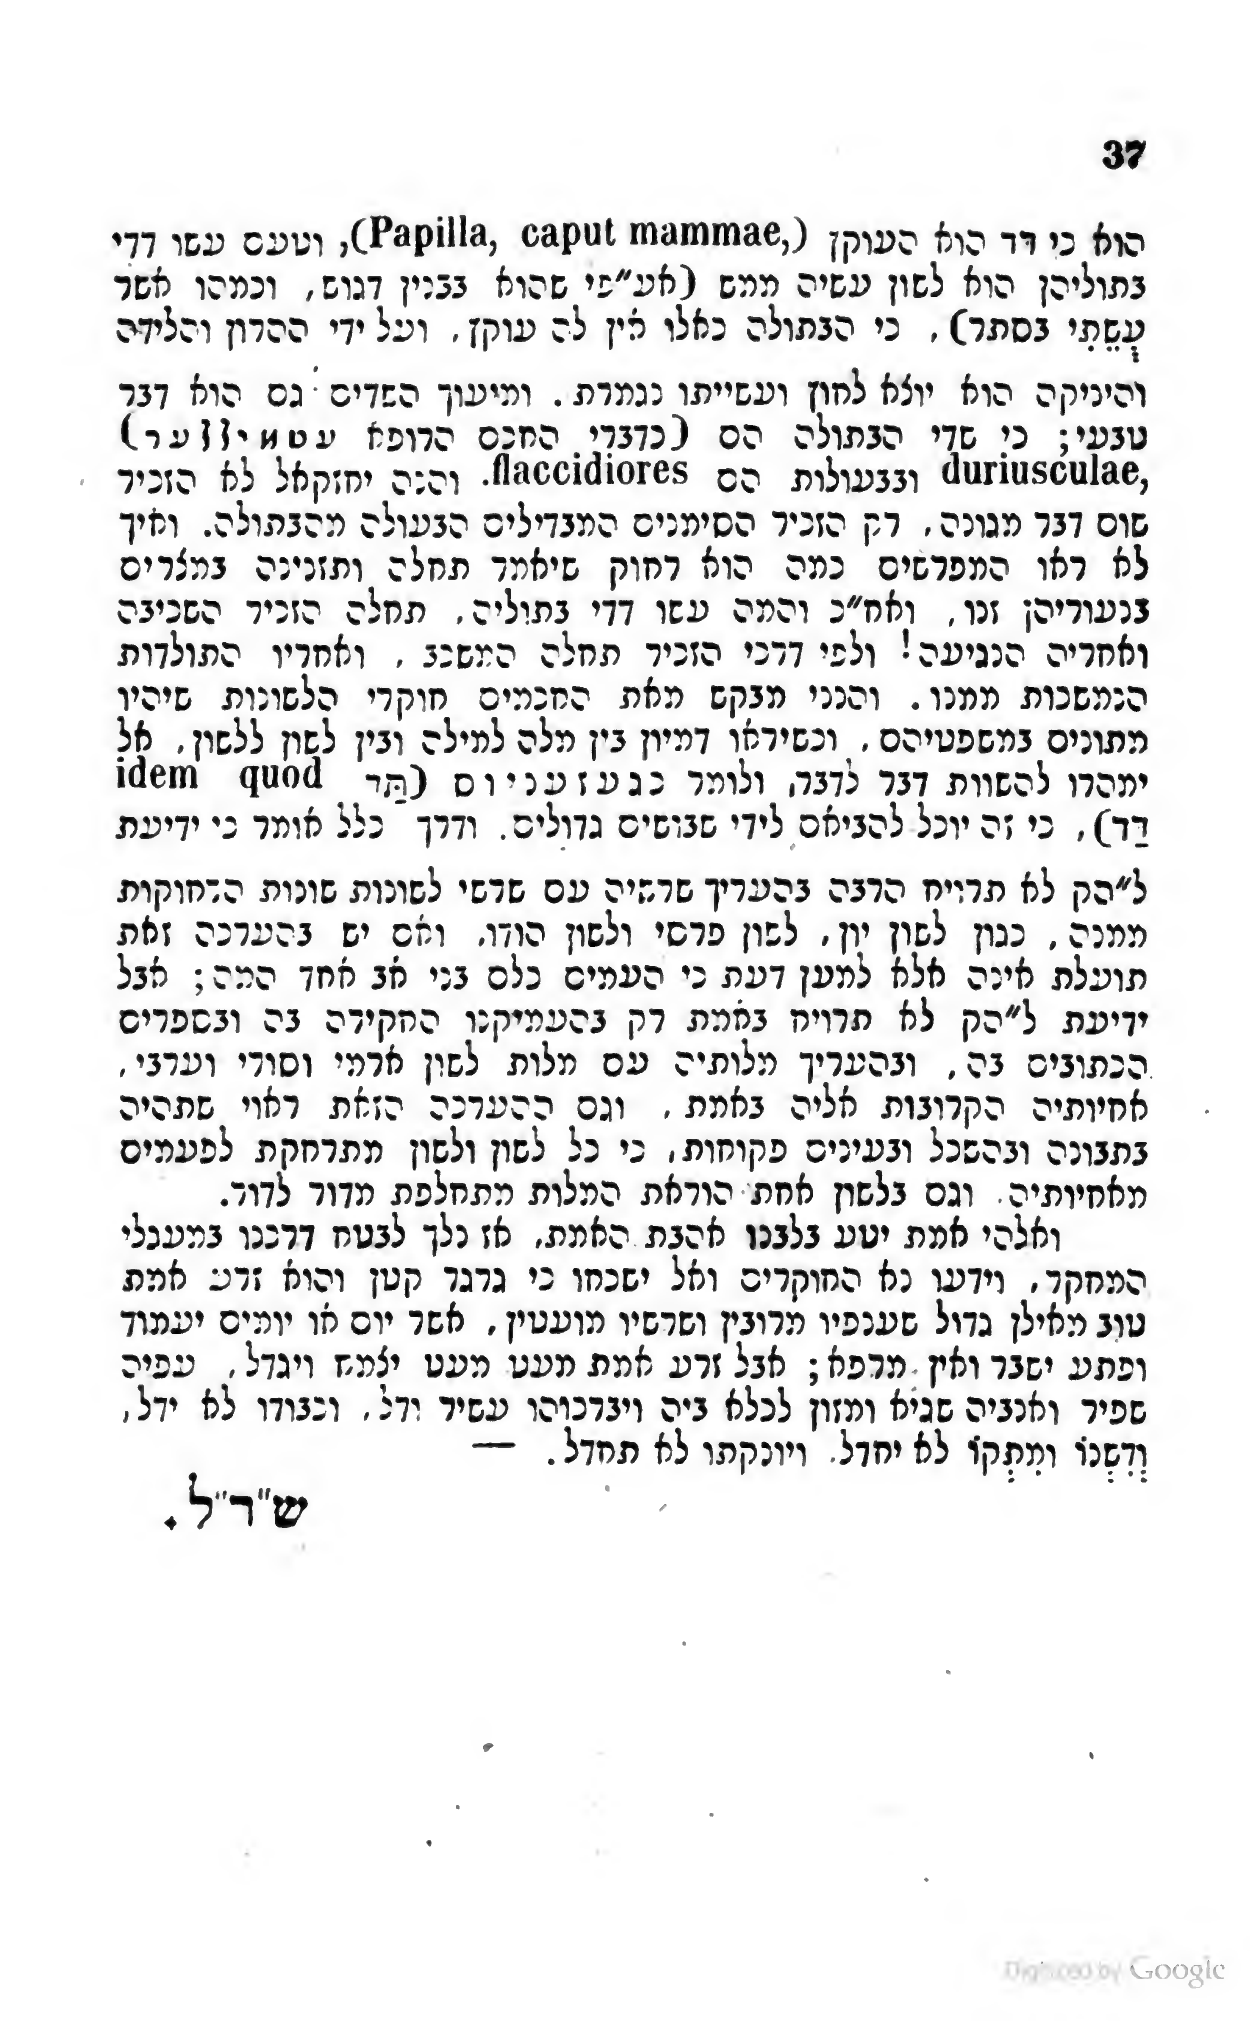 37
הוא כי דד הוא העוקץ (Papilla, caput mammae,), וטעם עשו דדי
בתוליהן הוא לשון עשיה ממש (אע״פי שהוא בבנין דגוש, וכמהו אשר
עֻשֵּׂתִי בסתר), כי הבתולה כאלו אין לה עוקץ, ועל ידי ההריון והלידה
והיניקה הוא יוצא לחוץ ועשייתו נגמרת. ומיעוך השדים גם הוא דבר
טבעי; כי שדי הבתולה הם (כדברי החכם הרופא
duriusculae, ובבעולות הם flaccidiores. והנה יחזקאל לא הזכיר
שום דבר מגונה, רק הזכיר הסימנים המבדילים הבעולה מהבתולה. ואיך
לא ראו המפרשים כמה הוא רחוק שיאמר תחלה ותזנינה במצרים
בנעוריהן זנו, ואח״כ והמה עשו דדי בתוליה, תחלה הזכיר השכיבה
ואחריה הנגיעה! ולפי דרכי הזכיר תחלה המשכב, ואחריו התולדות
הנמשכות ממנו. והנני מבקש מאת החכמים חוקרי הלשונות שיהיו
מתונים במשפטיהם, וכשיראו דמיון בין מלה למילה ובין לשון ללשון, אל
ימהרו להשוות דבר לדבר, ולומר כגעזעניוס (תַּד idem quod
דַּד), כי זה יוכל להביאם לידי שבושים גדולים. ודרך כלל אומר כי ידיעת
ל״הק לא תרויח הרבה בהעריך שרשיה עם שרשי לשונות שונות הרחוקות
ממנה, כגון לשון יון, לשון פרסי ולשון הודו, ואם יש בהערכה זאת
תועלת אינה אלא למען דעת כי העמים כלם בני אב אחד המה; אבל
ידיעת ל״הק לא תרויח באמת רק בהעמיקנו החקירה בה ובספרים
הכתובים בה, ובהעריך מלותיה עם מלות לשון ארמי וסורי וערבי,
אחיותיה הקרובות אליה באמת, וגם ההערכה הזאת ראוי שתהיה
בתבונה ובהשכל ובעינים פקוחות, כי כל לשון ולשון מתרחקת לפעמים
מאחיותיה, וגם בלשון אחת הוראת המלות מתחלפת מדור לדור.
ואלהי אמת יטע בלבנו אהבת האמת, אז נלך לבטח דרכנו במעגלי
המחקר, וידעו נא החוקרים ואל ישכחו כי גרגר קטן והוא זרע אמת
טוב מאילן גדול שענפיו מרובין ושרשיו מועטין, אשר יום או יומים יעמוד
ופתע ישבר ואין מרפא; אבל זרע אמת מעט מעט יצמח ויגדל, עפיה
שפיר ואנביה שגיא ומזון לכלא ביה ויברכוהו עשיר ודל, וכבודו לא ידל,
וְדִשְׁנוֹ וּמִתְקוֹ לא יחדל. ויונקתו לא תחדל. —
ש״ר״ל.
Digitized by Google